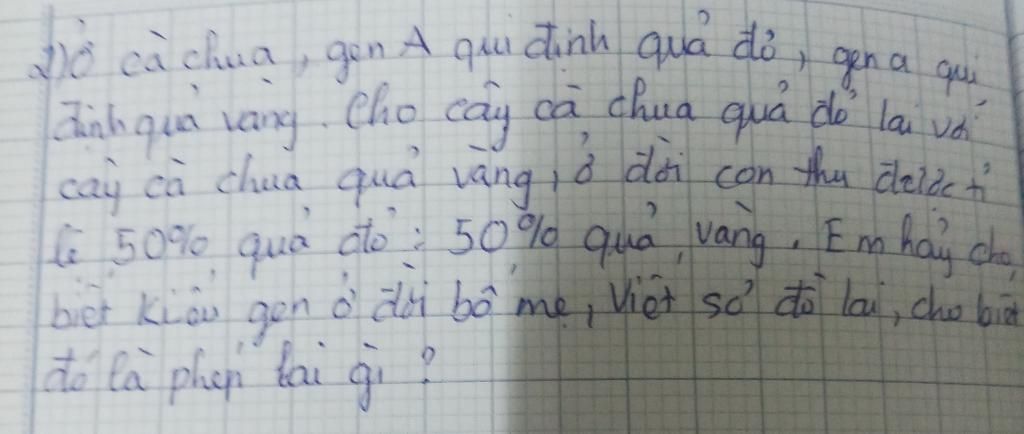 Ở cà chua, gen A qui định quả đỏ, gen a qui
định quả vàng. Cho cây cà chua quả đỏ lai với
cây cà chua quả vàng, ở đời con thu được tỉ
lệ 50% quả đỏ : 50% quả vàng. Em hãy cho
biết kiểu gen ở đời bố mẹ, viết sơ đồ lai, cho biết
đó là phép lai gì ?